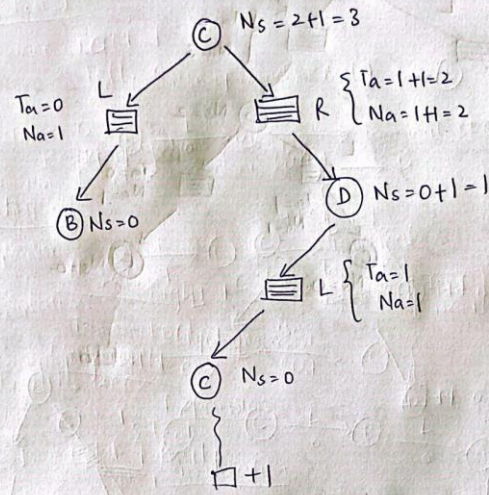 C Ns=2+1=3
L
Ta=0
Na=1
R
Ta=1+1=2
Na=1+1=2
B Ns=0
D Ns=0+1=1
L
Ta=1
Na=1
C Ns=0
+1